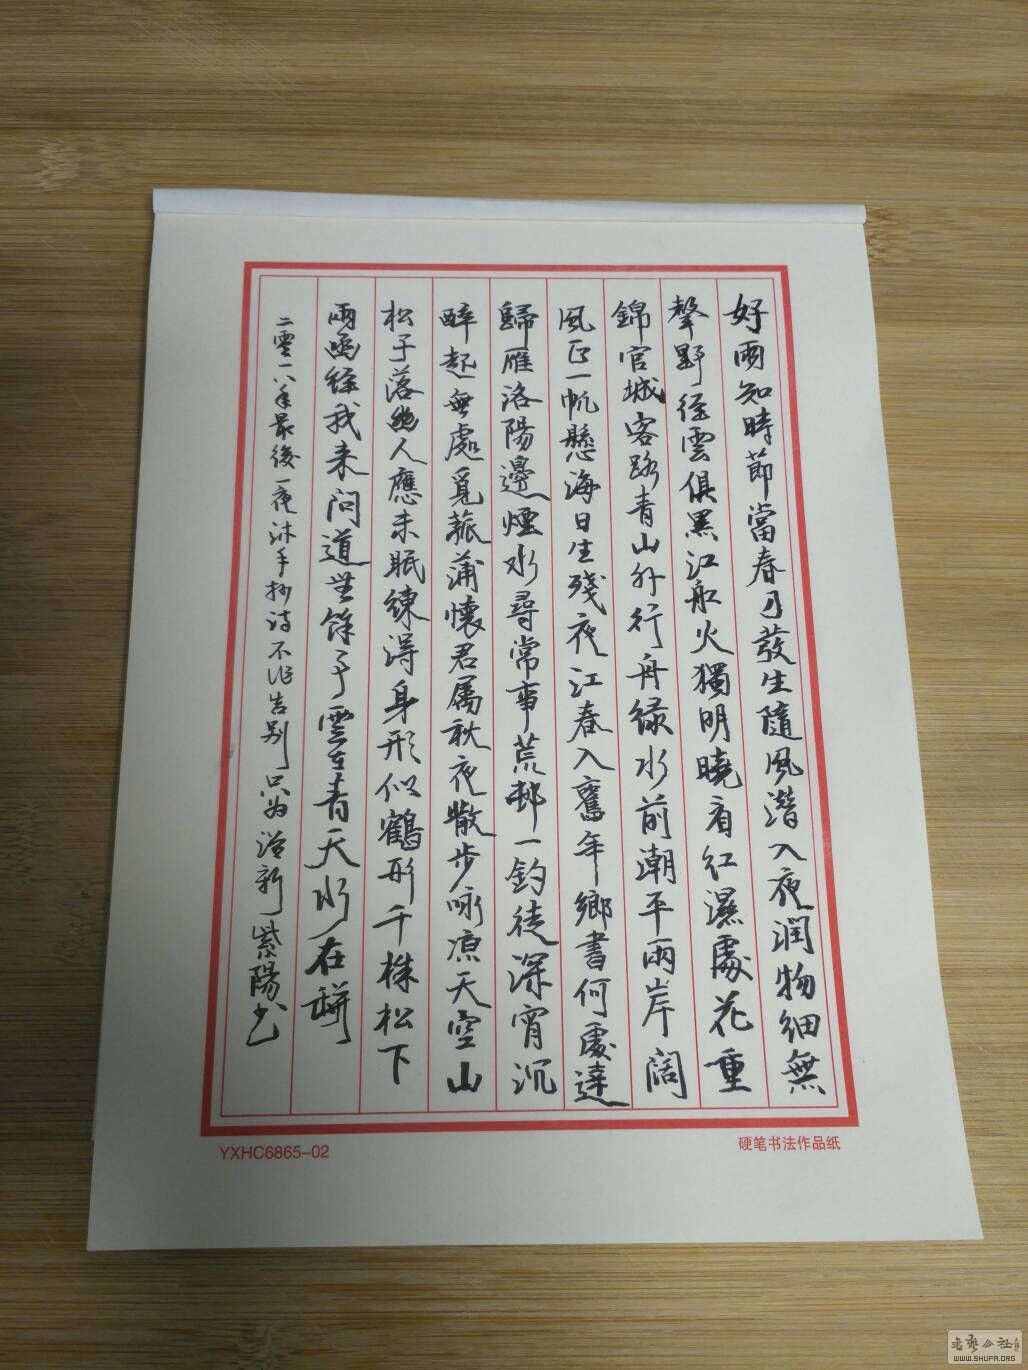 好雨知時節當春乃發生隨風潛入夜润物細無
聲野徑雲俱黑江船火獨明曉看紅濕處花重
錦官城客路青山外行舟綠水前潮平兩岸闊
風正一帆懸海日生殘夜江春入舊年鄉書何處達
歸雁洛陽邊煙水尋常事荒邨一釣徒深宵沉
醉起無處覓菰蒲懷君属秋夜散步咏凉天空山
松子落幽人應未眠練得身形似鶴形千株松下
兩函經我来问道無餘事雲在青天水在瓶
二零一八年最後一夜沐手抄诗不告别只为迎新紫陽书
YXHC6865-02
硬笔书法作品纸
书艺公社
WWW.SHUFA.ORG